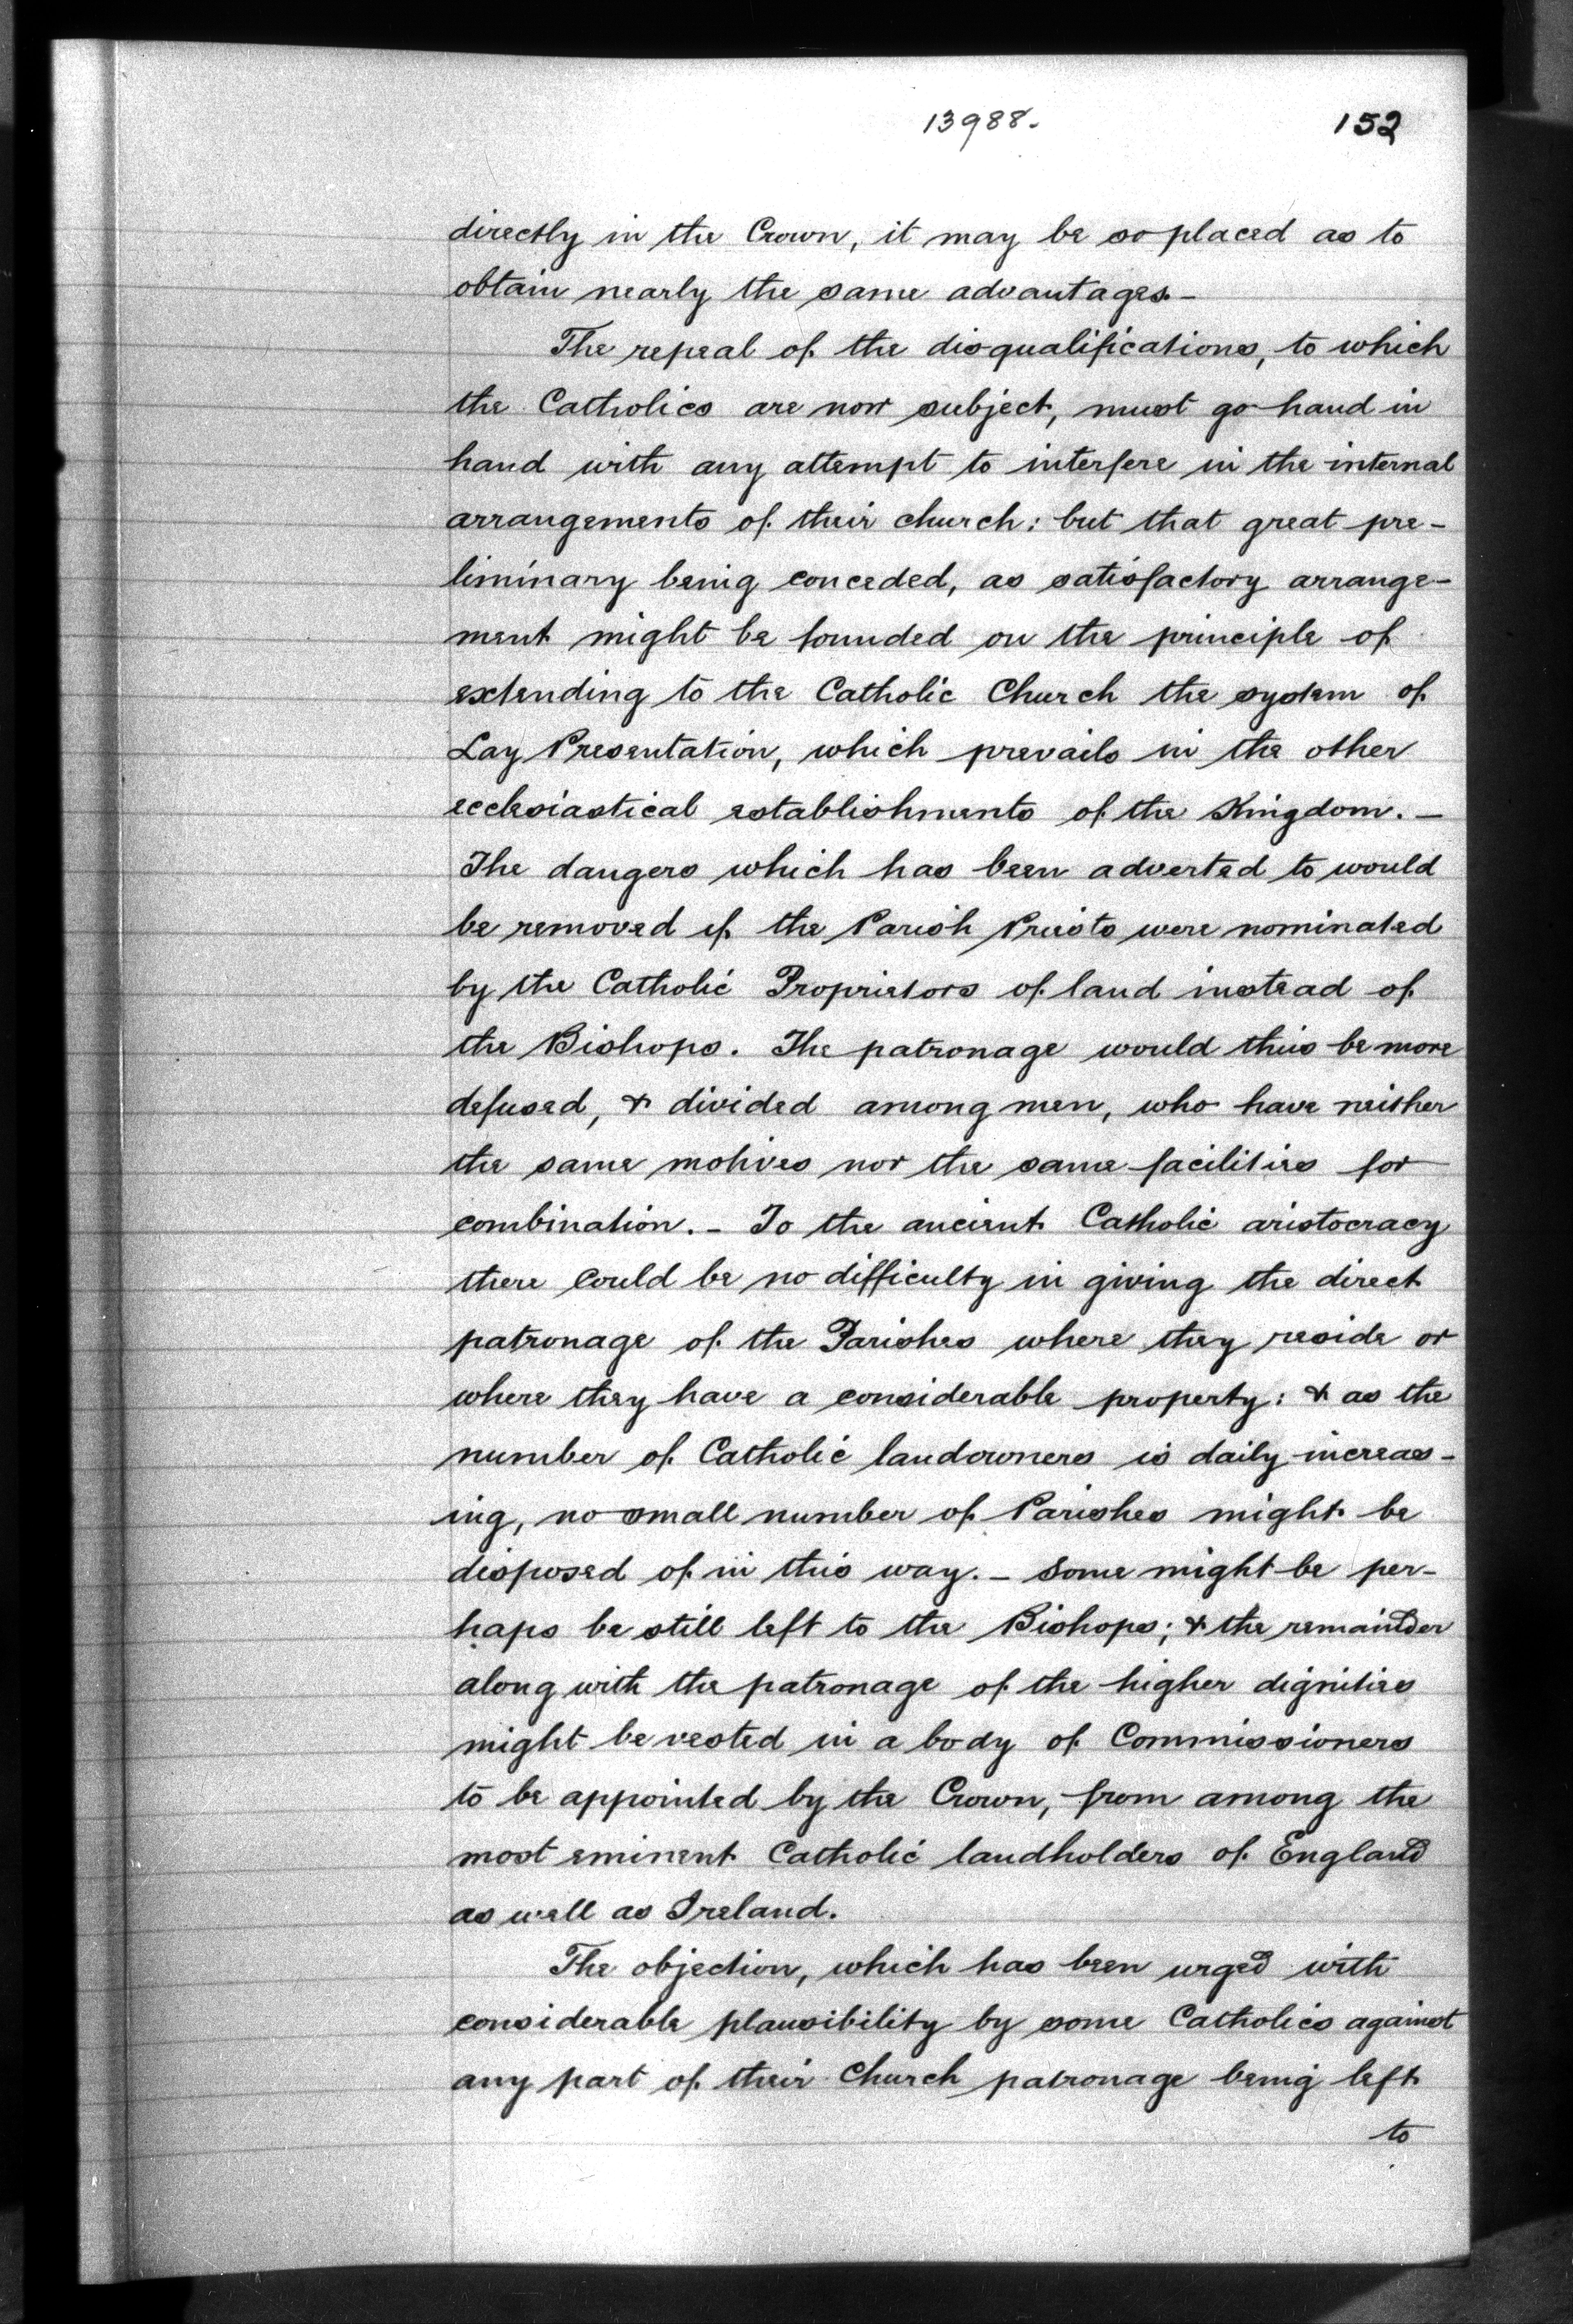 13988.
152
directly in the Crown, it may be so placed as to
obtain nearly the same advantages. –
The repeal of the disqualifications, to which
the Catholics are now subject, must go hand in
hand with any attempt to interfere in the internal
arrangements of their church: but that great pre-
liminary being conceded, as satisfactory arrange-
ment might be founded on the principle of
extending to the Catholic Church the system of
Lay Presentation, which prevails in the other
ecclesiastical establishments of the Kingdom. –
The dangers which has been adverted to would
be removed if the Parish Priests were nominated
by the Catholic Proprietors of land instead of
the Bishops. The patronage would thus be more
defused, & divided among men, who have neither
the same motives nor the same facilities for
combination. – To the ancient Catholic aristocracy
there could be no difficulty in giving the direct
patronage of the Parishes where they reside or
where they have a considerable property: & as the
number of Catholic landowners is daily increas-
ing, no small number of Parishes might be
disposed of in this way. – Some might be per-
haps be still left to the Bishops; & the remainder
along with the patronage of the higher dignities
might be vested in a body of Commissioners
to be appointed by the Crown, from among the
most eminent Catholic landholders of England
as well as Ireland.
The objection, which has been urged with
considerable plausibility by some Catholics against
any part of their Church patronage being left
to